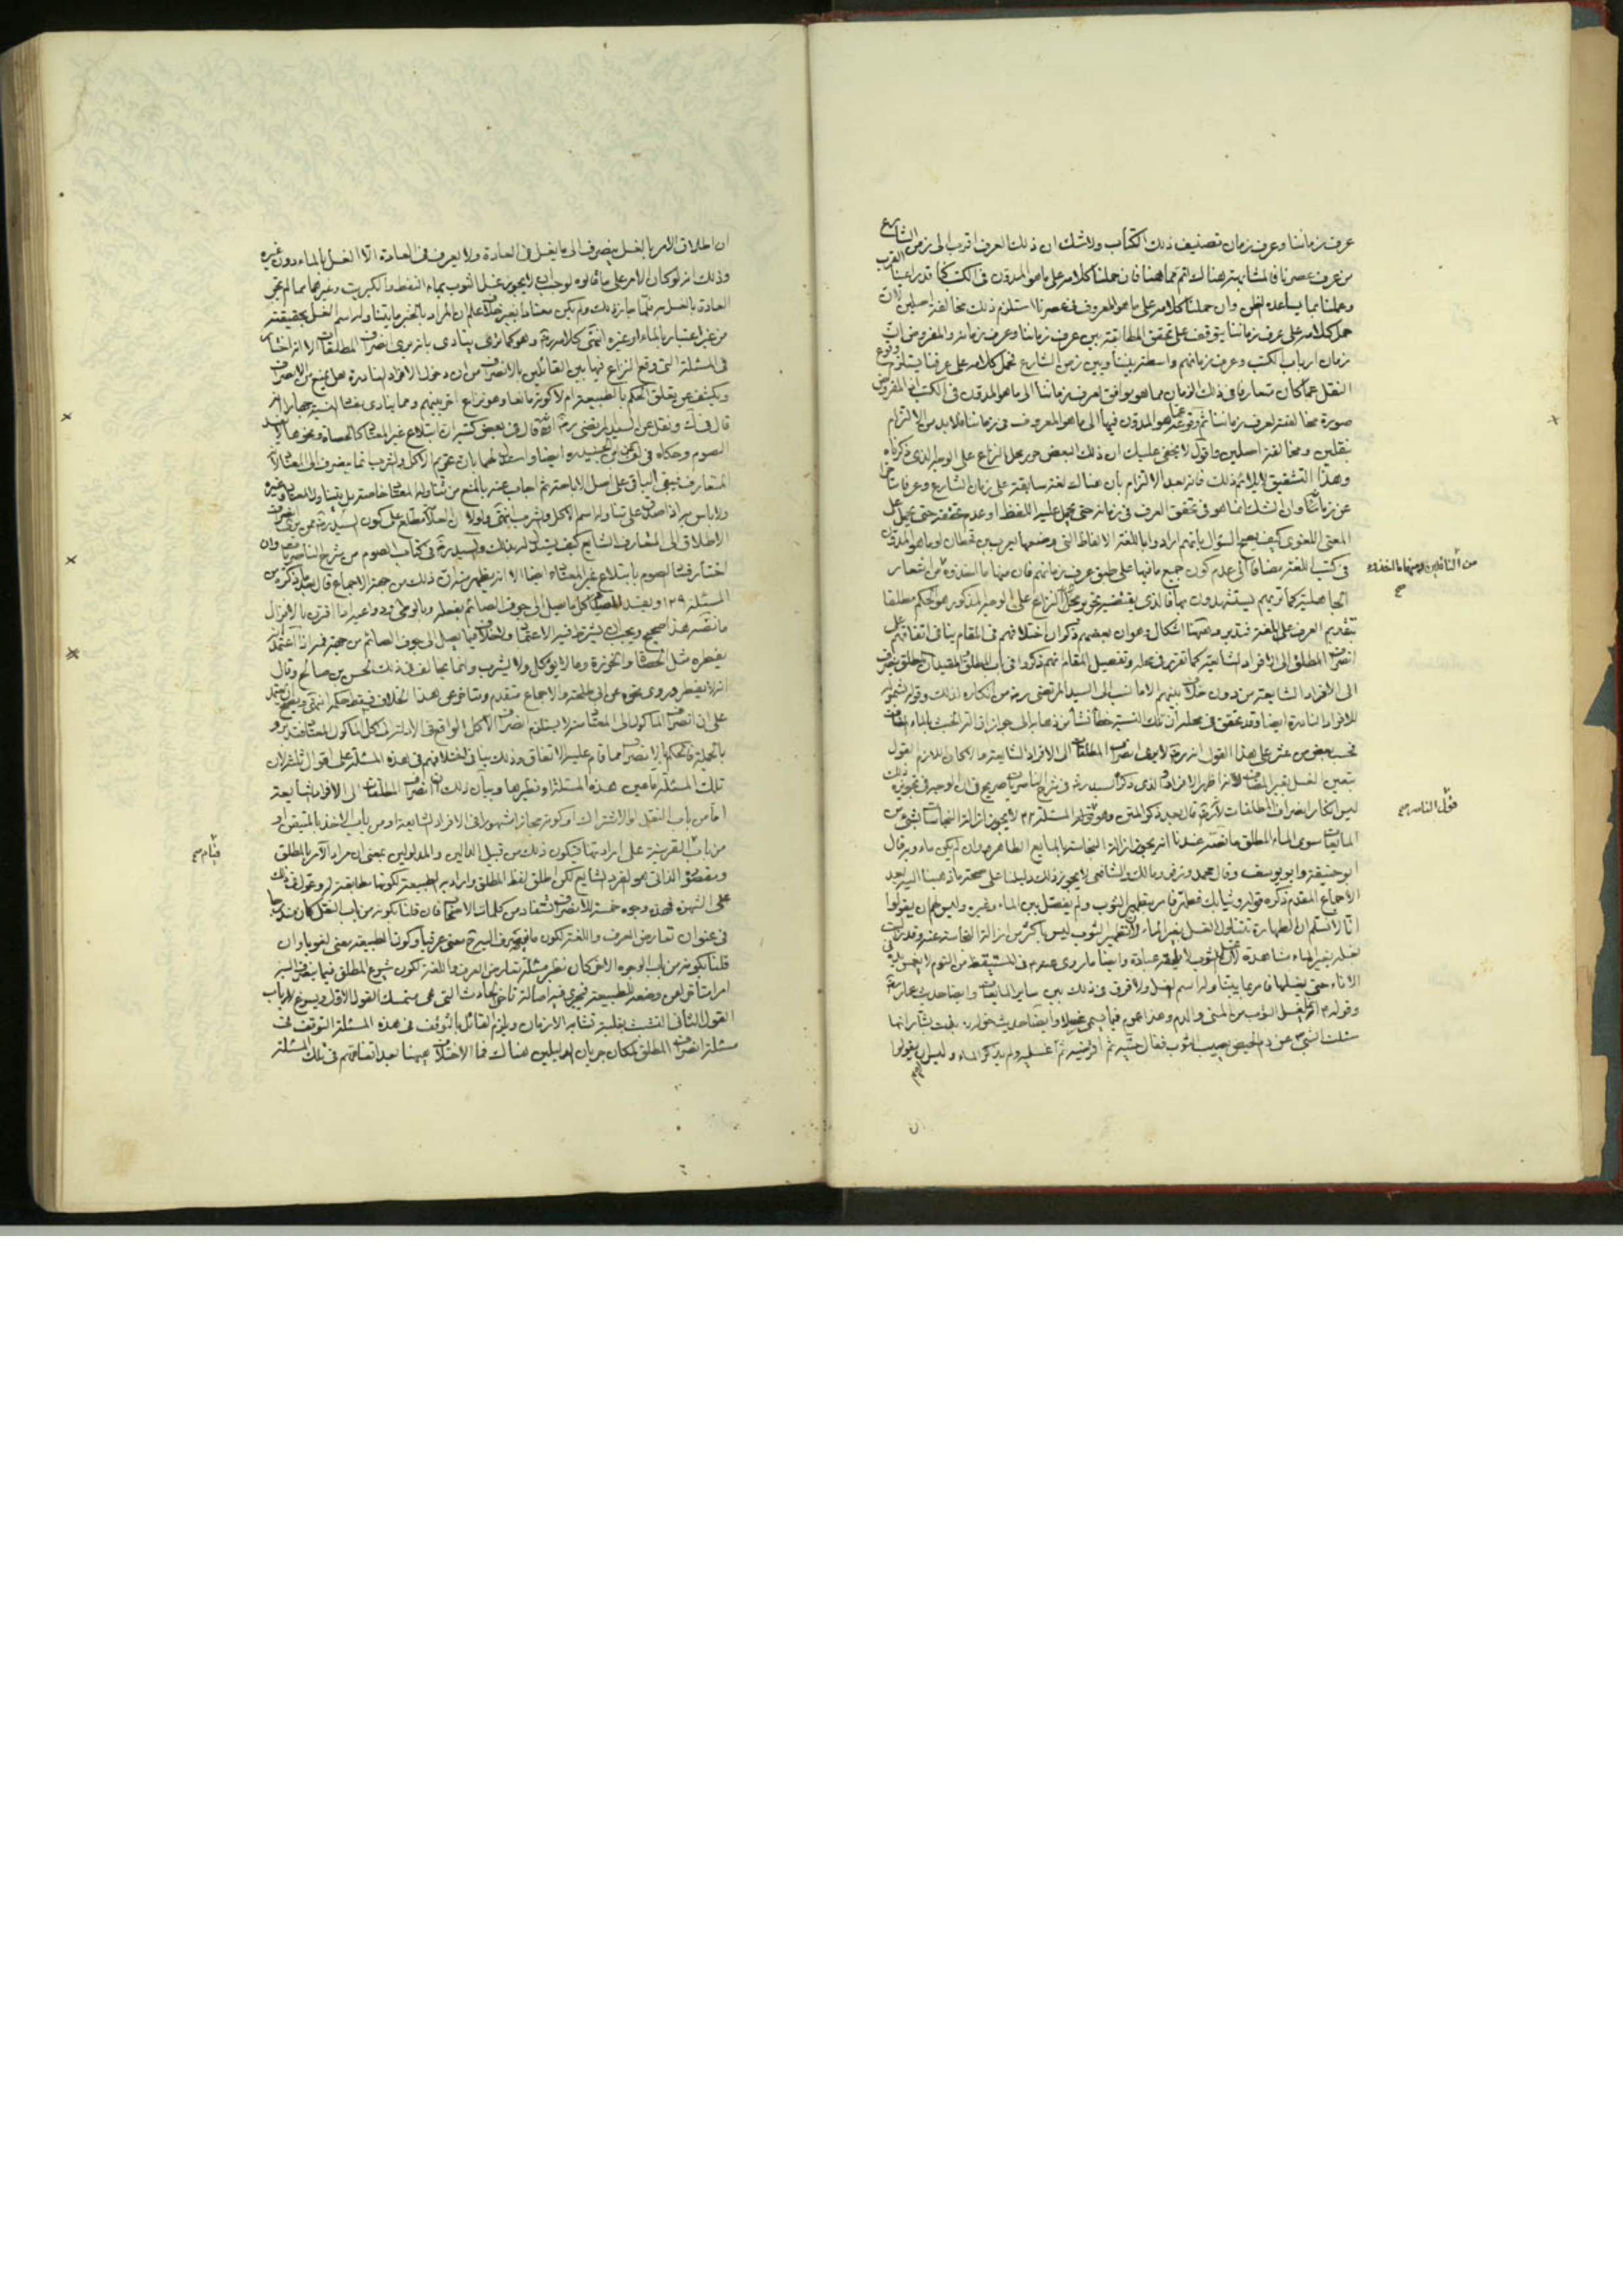 عرف زماننا وعرف زمان تصنيف ذلك الكتاب ولا شك ان ذلك العرف اقرب الى زمن الشارع
من عرف عصرنا فالمشابهة هناك اتم مما ههنا فان حملنا كلامه على ما هو المدون في الكتب
وعملنا بما يساعده الظن وان حملنا كلامه على ما هو المعروف في عصرنا استلزم ذلك مخالفة اصلين لان
حمل كلامه على عرف زماننا يتوقف على تحقق المطابقة بين عرف زماننا وعرف زمانه والمفروض ان
زمان ارباب الكتب وعرف زمانهم واسطة بيننا وبين زمن الشارع فحمل كلامه على عرفنا يستلزم وقوع
النقل عما كان متعارفا في ذلك الزمان مما هو يوافق لعرف زماننا الى ما هو المدون في الكتب اذ المفروض
صورة مخالفته لعرف زماننا ثم وقوعه عما هو المدون فيها الى ما هو المعروف في زماننا فلا بد من الالتزام
بنقلين ومخالفة اصلين واقول لا يخفى عليك ان ذلك البعض حرر محل النزاع على الوجه الذي ذكرناه
وهذا التشقيق لا يلائم ذلك فانه بعد الالتزام بان هناك لغة سابقة على زمان الشارع وعرفا متاخرا
عن زماننا وان الشك انما هو في تحقق العرف في زمانه حتى يحمل عليه اللفظ او عدم تحققه حتى يحمل على
المعنى اللغوي كيف يصح السؤال بانهم ارادوا باللغة الالفاظ التي وضعها يعرب بن قحطان او ما هو المدون
في كتب اللغة مضافا الى عدم كون جميع ما فيها على طبق عرف زمانهم فان منها ما اخذوه من اشعار
الجاهلية كما تريهم يستشهدون بها فالذي يقتضيه تحرير محل النزاع على الوجه المذكور هو الحكم مطلقا
بتقديم العرف على اللغة فتدبر وههنا اشكال وهو ان بعضهم ذكر ان اختلافهم في المقام ينافي اتفاقهم على
انصراف المطلق الى الافراد الشايعة كما تقرر في محله وتفصيل المقام انهم ذكروا في باب المطلق والمقيد ان المطلق ينصرف
الى الافراد الشايعة من دون خلاف بينهم الا ما نسب الى السيد المرتضى ره من انكاره لذلك وقوله بشموله
للافراد النادرة ايضا وقد تحقق في محله ان تلك النسبة خطأ نشأ من ذهابه الى جواز ازالة الخبث بالماء المضاف
فحسب بعض من عثر على هذا القول انه ره لا يرى انصراف المطلقات الى الافراد الشايعة والا لكان اللازم القول
بتعين الغسل بغير المضاف لانه اظهر الافراد والذي ذكره السيد ره في شرح الناصريات صريح في ان الوجه في تجويزه ذلك
ليس انكار انصراف المطلقات لانه ره قال بعد ذكر المتن وهو قوله المسئلة ٢٢ لا يجوز ازالة النجاسات بشئ من
المايعات سوى الماء المطلق ما نصه عندنا انه يجوز ازالة النجاسة بالمايع الطاهر وان لم يكن ماء وبه قال
ابو حنيفة وابو يوسف وقال محمد وزفر ومالك والشافعي لا يجوز ذلك دليلنا على صحة ما ذهبنا اليه بعد
الاجماع المقدم ذكره قوله وثيابك فطهر فامر بتطهير الثوب ولم يفصل بين الماء وغيره وليس لهم ان يقولوا
انا لا نسلم ان الطهارة تتناول الغسل بغير الماء لان تطهير الثوب ليس باكثر من ازالة النجاسة عنه وقد زالت
بغسله بغير الماء مشاهدة لان الثوب لا يلحقه عبادة وايضا ما روى عنه م في المستيقظ من النوم لا يغمس يده في
الاناء حتى يغسلها فامر بما يتناوله اسم الغسل ولا فرق في ذلك بين ساير المايعات وايضا حديث عمار ره
وقوله م انما يغسل الثوب من المني والدم وهذا عموم فيما يسمى غسلا وايضا حديث خولة بنت يسار انها
سئلت النبي م عن دم الحيض يصيب الثوب فقال حتيه ثم اقرصيه ثم اغسليه ولم يذكر الماء وليس لهم ان يقولوا
من الناقلين ومنها ما اخذوه صح
قول الناصر صح
ان اطلاق الامر بالغسل ينصرف الى ما يغسل في العادة ولا يعرف في العادة الا الغسل بالماء دون غيره
وذلك انه لو كان الامر على ما قالوه لوجب ان لا يجوز غسل الثوب بماء النفط والكبريت وغيرهما مما لم تجر
العادة بالغسل به فلما جاز ذلك ولم يكن معتادا بغير خلاف علم ان المراد بالخبر ما يتناوله اسم الغسل بحقيقته
من غير اعتبار بالماء او غيره انتهى كلامه ره وهو كما ترى ينادي بانه يرى انصراف المطلقات الا انه اختار
في المسئلة التي وقع النزاع فيها بين القائلين بالانصراف من ان دخول الافراد النادرة هل يمنع من الانصراف
ويكشف عن تعلق الحكم بالطبيعة ام لا كونه مانعا وهو نزاع اخر بينهم ومما ينادي بفساد النسبة جهارا انه
قال في ك ونقل عن السيد المرتضى ره انه قال في بعض كتبه ان ابتلاع غير المعتاد كالحصاة ونحوها لا يفسد
الصوم وحكاه في لف عن ابن الجنيد ره ايضا واستدل لهما بان تحريم الاكل والشرب انما ينصرف الى المعتاد لانه
المتعارف فيبقى الباقي على اصل الاباحة ثم اجاب عنه بالمنع من تناول المعتاد خاصة بل يتناول المعتاد وغيره
ولا باس به اذا صدق على تناوله اسم الاكل والشرب انتهى
الاطلاق الى المتعارف الشايع كيف يستدل له بذلك والسيد ره في كتاب الصوم من شرح الناصريات وان
اختار فساد الصوم بابتلاع غير المعتاد ايضا الا انه يظهر منه ان ذلك من جهة الاجماع قال بعد ذكره من
المسئلة ١٢٩ ويفسد الصيام كل ما يصل الى جوف الصائم بفعله وبالوطي ودواعيه اذا اقترن بالانزال
ما نصه هذا صحيح ويجب ان يشترط فيه الاعتماد ولا خلاف فيما يصل الى جوف الصائم من جهة فمه اذا اعتمد انه
يفطره مثل الحصاة والخرزة وما لا يؤكل ولا يشرب وانما يخالف في ذلك الحسن بن صالح وقال
انه لا يفطر وروى نحوه عن ابي طلحة والاجماع متقدم ومتاخر عن هذا الخلاف فيسقط حكمه انتهى
على ان انصراف الماكول الى المعتاد منه لا يستلزم انصراف الاكل الواقع في الادلة الى اكل الماكول المعتاد فتدبر
بالجملة فالحكم بالانصراف مما قام عليه الاتفاق وذلك ينافي اختلافهم في هذه المسئلة على اقوال ثلثة لان
تلك المسئلة اما عين هذه المسئلة او نظيرها وبيان ذلك ان انصراف المطلقات الى الافراد الشايعة
اما من باب النقل او الاشتراك او كونه مجازا مشهورا في الافراد الشايعة او من باب الاخذ بالمتيقن او
من باب القرينة على ارادتها فيكون ذلك من قبيل الدالين والمدلولين بمعنى ان مراد الآمر بالمطلق
ومقصوده الذاتي هو الفرد الشايع لكن اطلق لفظ المطلق واراد به الطبيعة لكونها مطابقة له وعول في ذلك
على الشهرة فهذه وجوه خمسة للانصراف تستفاد من كلمات الاصحاب فان قلنا بكونه من باب النقل كان مندرجا
في عنوان تعارض العرف واللغة لكون ما ينصرف اليه معنى عرفيا وكون الطبيعة معنى لغويا وان
قلنا بكونه من باب الوجوه الاخر كان نظير مسئلة تعارض العرف واللغة لكون شيوع المطلق فيما ينصرف اليه
امرا متاخرا عن وضعه للطبيعة فيجري فيه اصالة تاخر الحادث التي هي متمسك القول الاول ويسوغ لارباب
القول الثاني التشبث بغلبة تشابه الازمان ويلزم القائل بالتوقف في هذه المسئلة التوقف في
مسئلة انصراف المطلق لمكان جريان الدليلين هناك فما الاختلاف ههنا بعد اتفاقهم في تلك المسئلة